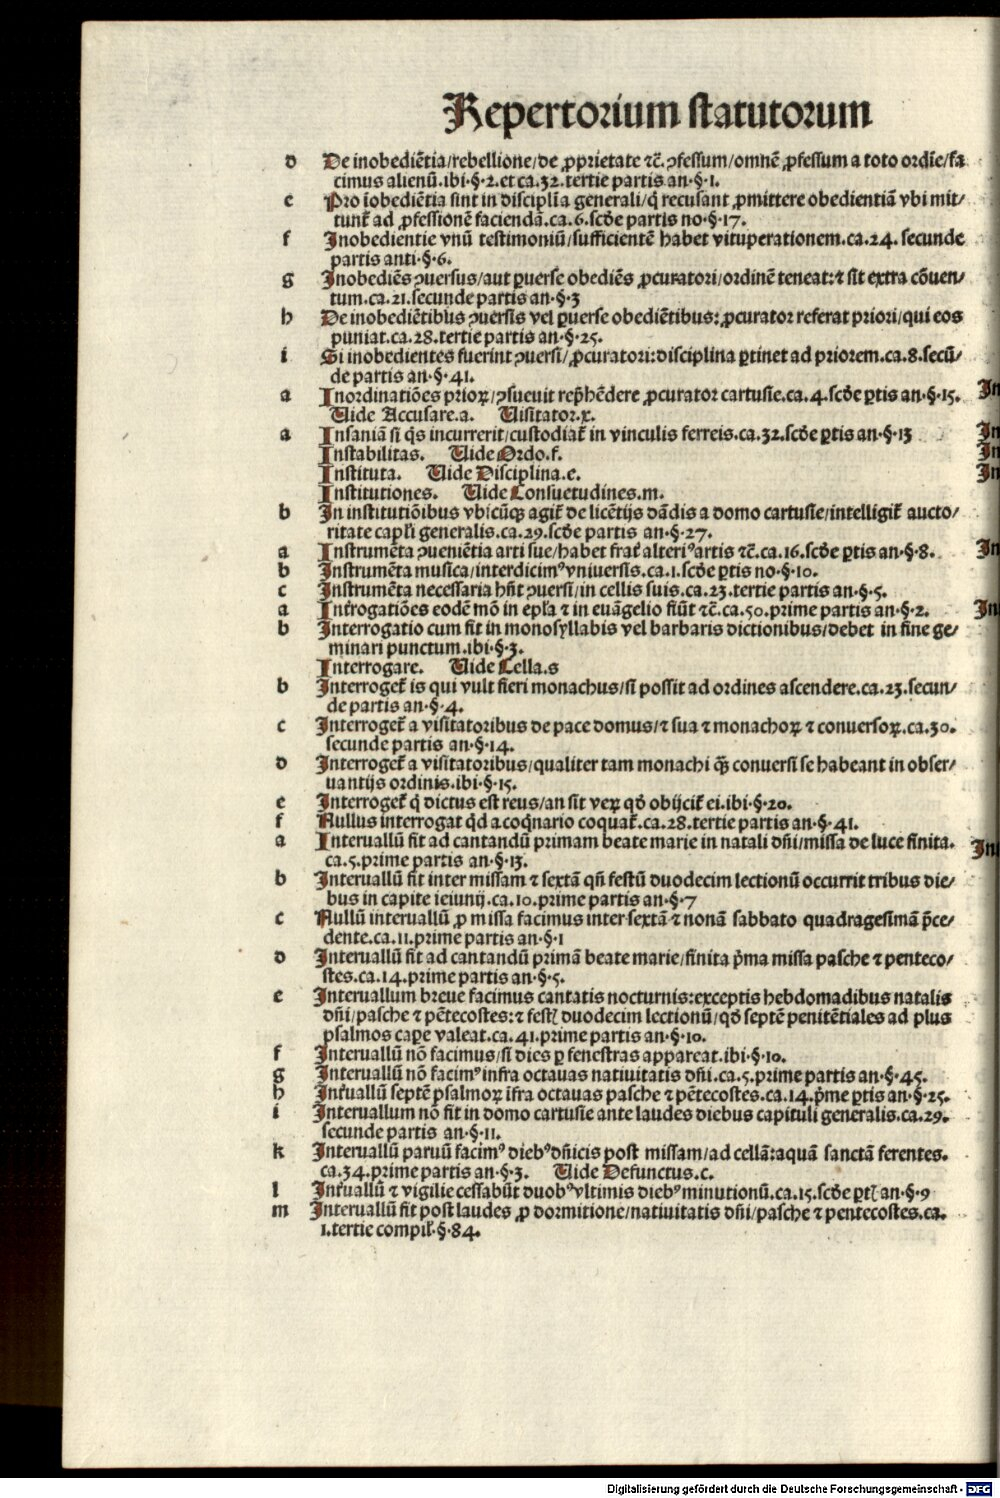 Repertorium statutorum
d De inobediẽtia/rebellione/de ꝓprietate ⁊c̃. ꝓfessum/omnẽ ꝓfessum a toto ordĩe/fa
cimus alienũ.ibi.§.2.et ca.32.tertie partis an.§.1.
e Pro ĩobediẽtia sint in discipl̃ia generali/q̃ recusant ꝓmittere obedientiã vbi mit/
tunt̃ ad ꝓfessionẽ faciendã.ca.6.scd̃e partis no.§.17.
f Inobedientie vnũ testimoniũ/sufficientẽ habet vituperationem.ca.24. secunde
partis anti.§.6.
g Inobediẽs ꝯuersus/aut ꝑuerse obediẽs ꝓcuratori/ordinẽ teneat:⁊ sit extra cõuen/
tum.ca.21.secunde partis an.§.3
h De inobediẽtibus ꝯuersis vel ꝑuerse obediẽtibus:ꝓcurator referat priori/qui eos
puniat.ca.28.tertie partis an.§.25.
i Si inobedientes fuerint ꝯuersi/ꝓcuratori:disciplina ꝑtinet ad priorem.ca.8.secũ/
de partis an.§.41.
a Inordinatiões prioꝝ/ꝯsueuit rep̃hẽdere ꝓcurator cartusie.ca.4.scd̃e ꝑtis an.§.15.
Uide Accusare.a. Uisitator.x.
a Insaniã si q̃s incurrerit/custodiat̃ in vinculis ferreis.ca.32.scd̃e ꝑtis an.§.13
Instabilitas. Uide Ordo.f.
Instituta. Uide Disciplina.e.
Institutiones. Uide Consuetudines.m.
b In institutiõibus vbicũqꝫ agit̃ de licẽtijs dãdis a domo cartusie/intelligit̃ aucto/
ritate capl̃i generalis.ca.29.scd̃e partis an.§.27.
a Instrumẽta ꝯueniẽtia arti sue/habet frat̃ alteriꝰ artis ⁊c̃.ca.16.scd̃e ꝑtis an.§.8.
b Instrumẽta musica/interdicimꝰ vniuersis.ca.1.scd̃e ꝑtis no.§.10.
c Instrumẽta necessaria hñt ꝯuersi/in cellis suis.ca.23.tertie partis an.§.5.
a Int̃rogatiões eodẽ mõ in epl̃a ⁊ in euãgelio fiũt ⁊c̃.ca.50.prime partis an.§.2.
b Interrogatio cum fit in monosyllabis vel barbaris dictionibus/debet in fine ge/
minari punctum.ibi.§.3.
Interrogare. Uide Cella.s
b Interroget̃ is qui vult fieri monachus/si possit ad ordines ascendere.ca.23.secun/
de partis an.§.4.
c Interroget̃ a visitatoribus de pace domus/⁊ sua ⁊ monachoꝝ ⁊ conuersoꝝ.ca.30.
secunde partis an.§.14.
d Interroget̃ a visitatoribus/qualiter tam monachi q̃ꝫ conuersi se habeant in obser/
uantijs ordinis.ibi.§.15.
e Interroget̃ q̃ dictus est reus/an sit veꝝ qd̃ obijcit̃ ei.ibi.§.20.
f Nullus interrogat q̃d a coq̃nario coquat̃.ca.28.tertie partis an.§.41.
a Interuallũ fit ad cantandũ primam beate marie in natali dñi/missa de luce finita.
ca.5.prime partis an.§.13.
b Interuallũ fit inter missam ⁊ sextã qñ festũ duodecim lectionũ occurrit tribus die/
bus in capite ieiunij.ca.10.prime partis an.§.7
c Nullũ interuallũ ꝓ missa facimus inter sextã ⁊ nonã sabbato quadragesimã p̃ce/
dente.ca.11.prime partis an.§.1
d Interuallũ fit ad cantandũ primã beate marie/finita p̃ma missa pasche ⁊ penteco/
stes.ca.14.prime partis an.§.5.
e Interuallum breue facimus cantatis nocturnis:exceptis hebdomadibus natalis
dñi/pasche ⁊ pẽtecostes:⁊ festꝭ duodecim lectionũ/qd̃ septẽ penitẽtiales ad plus
psalmos caꝑe valeat.ca.41.prime partis an.§.10.
f Interuallũ nõ facimus/si dies ꝑ fenestras appareat.ibi.§.10.
g Interuallũ nõ facimꝰ infra octauas natiuitatis dñi.ca.5.prime partis an.§.45.
h Int̃uallũ septẽ psalmoꝝ ĩfra octauas pasche ⁊ pẽtecostes.ca.14.p̃me ꝑtis an.§.25.
i Interuallum nõ fit in domo cartusie ante laudes diebus capituli generalis.ca.29.
secunde partis an.§.11.
k Interuallũ paruũ facimꝰ diebꝰ dñicis post missam/ad cellã:aquã sanctã ferentes.
ca.34.prime partis an.§.3. Uide Defunctus.c.
l Int̃uallũ ⁊ vigilie cessabũt duobꝰ vltimis diebꝰ minutionũ.ca.15.scd̃e ꝑtꝭ an.§.9
m Interuallũ fit post laudes ꝓ dormitione/natiuitatis dñi/pasche ⁊ pentecostes.ca.
1.tertie compil̃.§.84.
In
In
In
In
In
In
Int
Digitalisierung gefördert durch die Deutsche Forschungsgemeinschaft - DFG